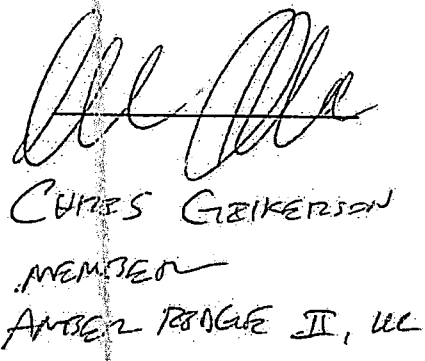 CHRIS GEIKERSON
MEMBER
AMBER RIDGE II, LLC